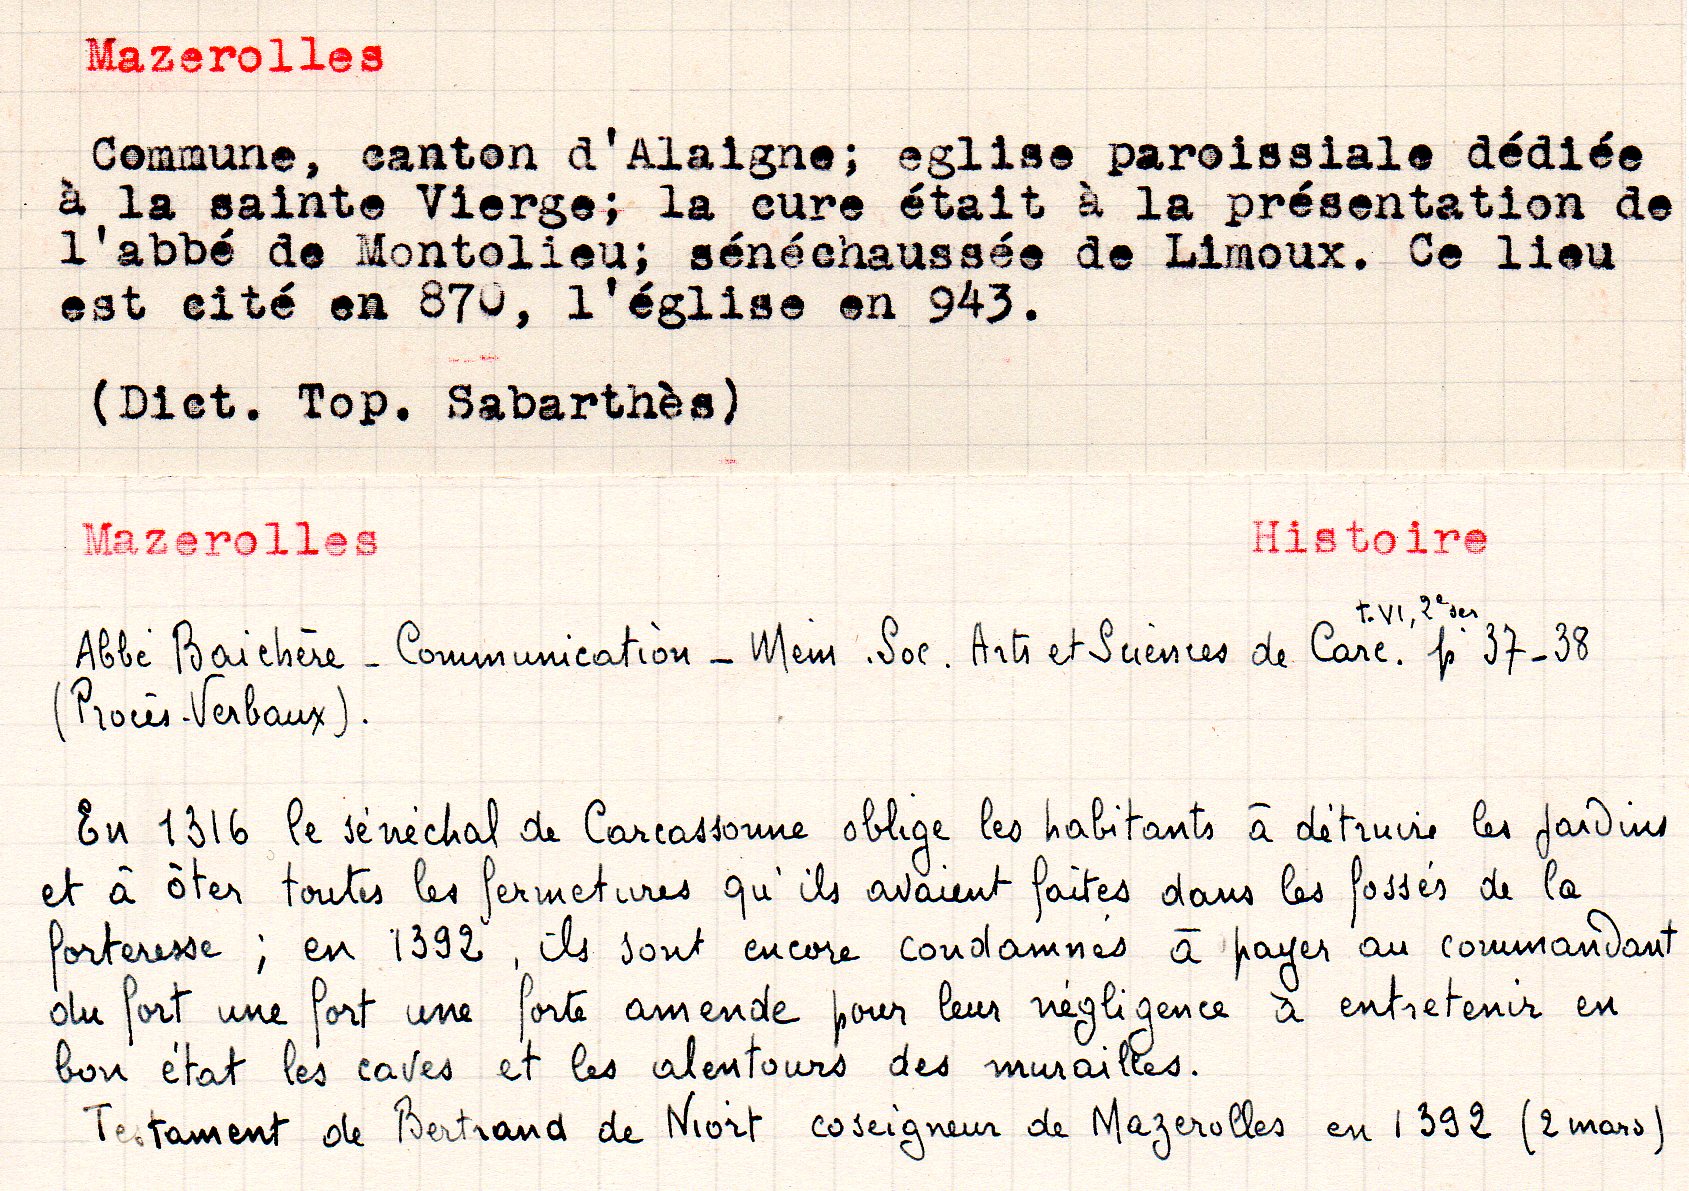 Mazerolles
Commune, canton d'Alaigne; eglise paroissiale dédiée
à la sainte Vierge; la cure était à la présentation de
l'abbé de Montolieu; sénéchaussée de Limoux. Ce lieu
est cité en 870, l'église en 943.
(Dict. Top. Sabarthès)
Mazerolles Histoire
t. VI, 2e ser
Abbé Baichère - Communication - Mém. Soc. Arts et Sciences de Carc. p 37-38
(Procès-Verbaux).
En 1316 le sénéchal de Carcassonne oblige les habitants à détruire les jardins
et à ôter toutes les fermetures qu'ils avaient faites dans les fossés de la
forteresse ; en 1392, ils sont encore condamnés à payer au commandant
du fort une fort une forte amende pour leur négligence à entretenir en
bon état les caves et les alentours des murailles.
Testament de Bertrand de Niort coseigneur de Mazerolles en 1392 (2 mars)